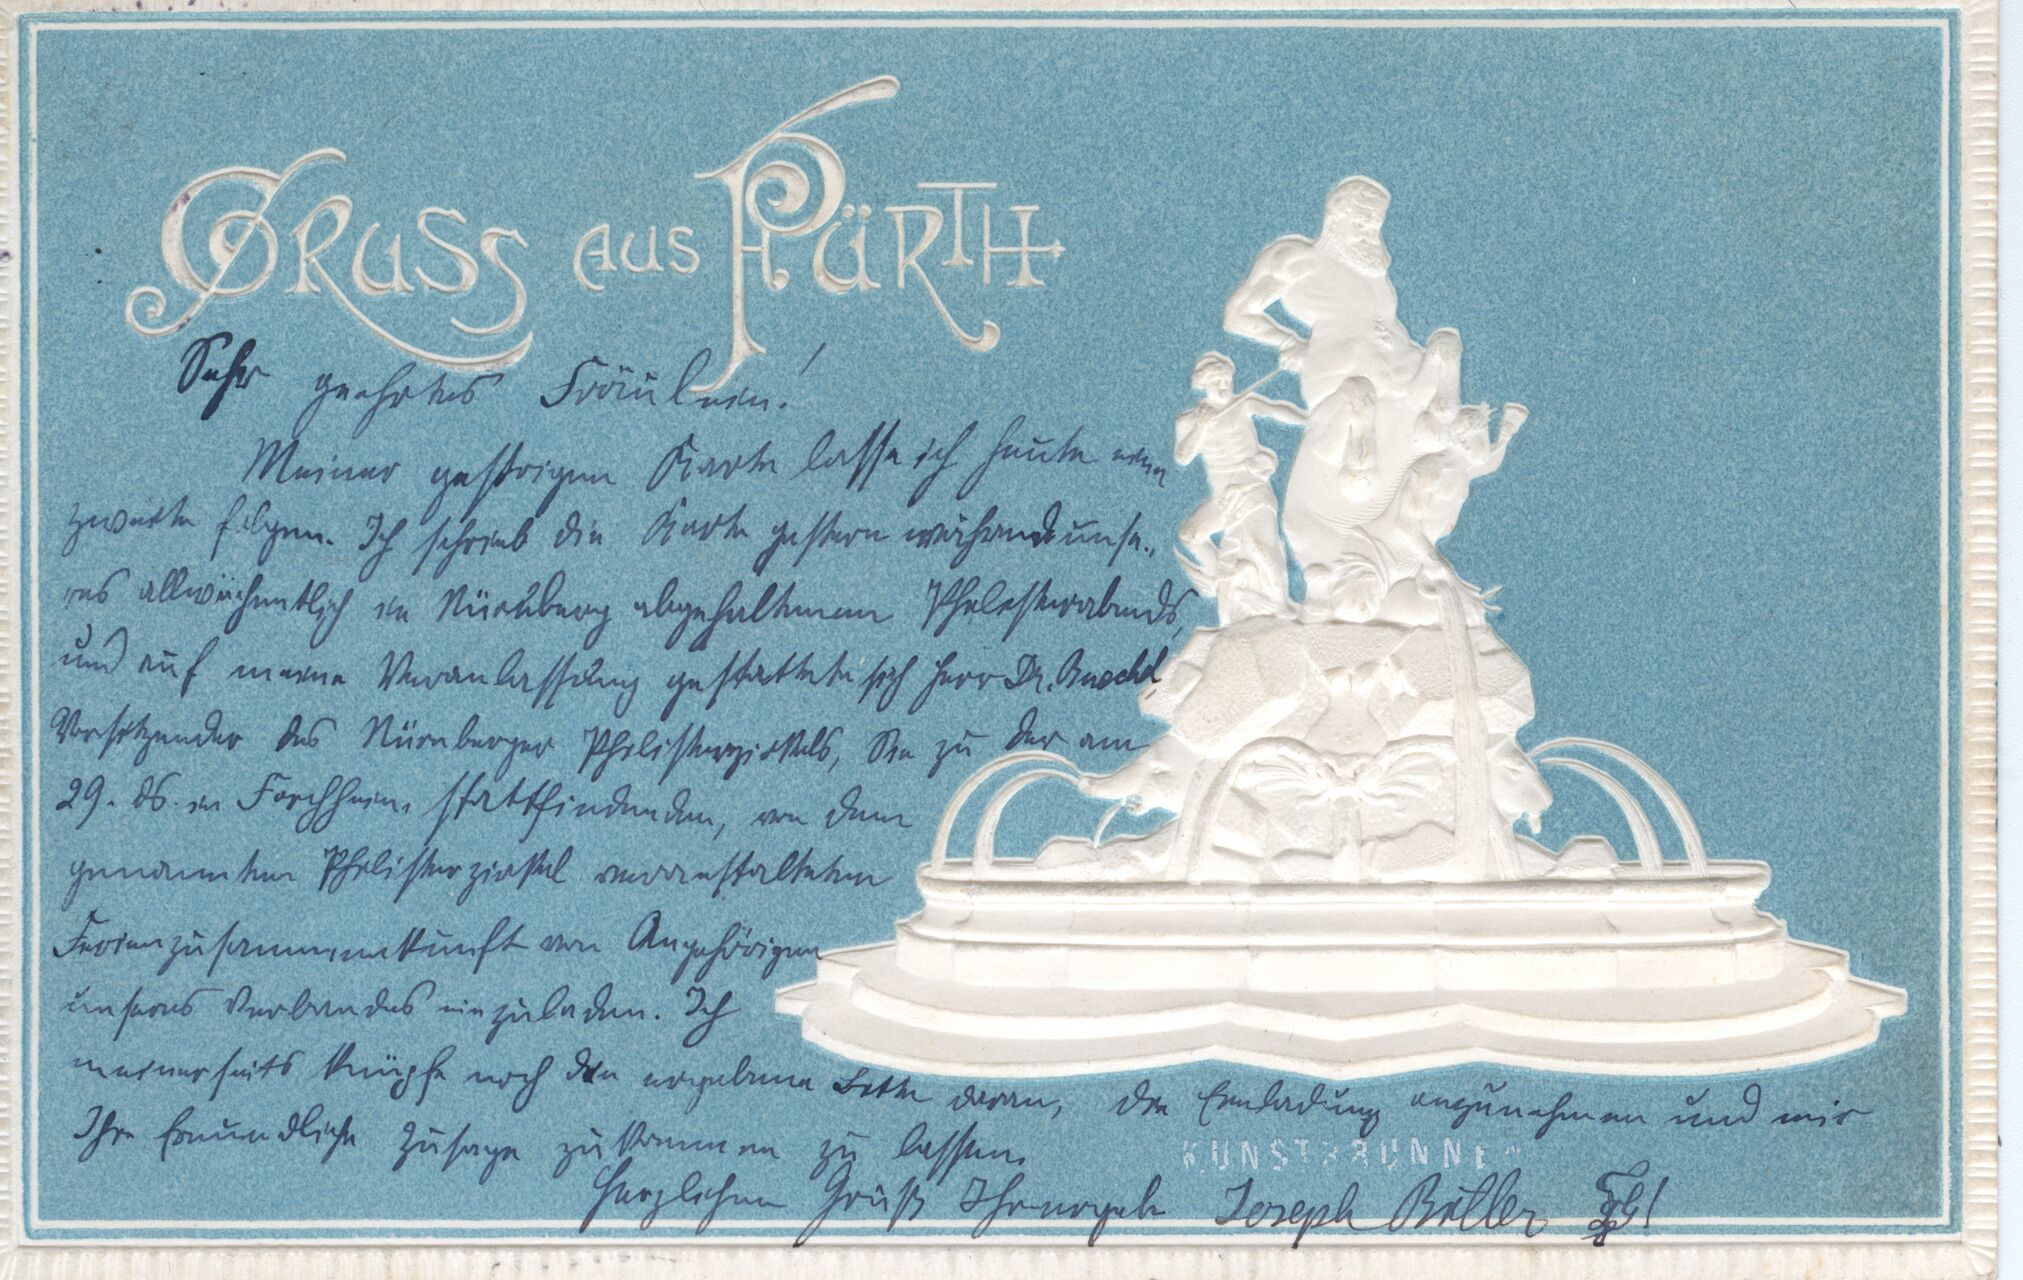 GRUSS AUS FÜRTH
Sehr geehrtes Fräulein!
Meiner gestrigen Karte lasse ich heute eine
zweite folgen. Ich schrieb die Karte gestern während unse-
res allwöchentlich in Nürnberg abgehaltenen Philisterabends,
und auf meine Veranlassung gestattete sich Herr Dr.
Vorsitzender des Nürnberger Philisterzirkels, Sie zu der am
29. ds. in Forchheim stattfindenden, von dem
genannten Philisterzirkel veranstalteten
Ferienzusammenkunft von Angehörigen
unseres Verbandes einzuladen. Ich
meinerseits knüpfe noch die ergebene Bitte daran, die Einladung anzunehmen und mir
Ihre freundliche Zusage zukommen zu lassen.
KUNSTBRUNNEN
Herzlichen Gruß Ihr ergeb. Joseph Büller